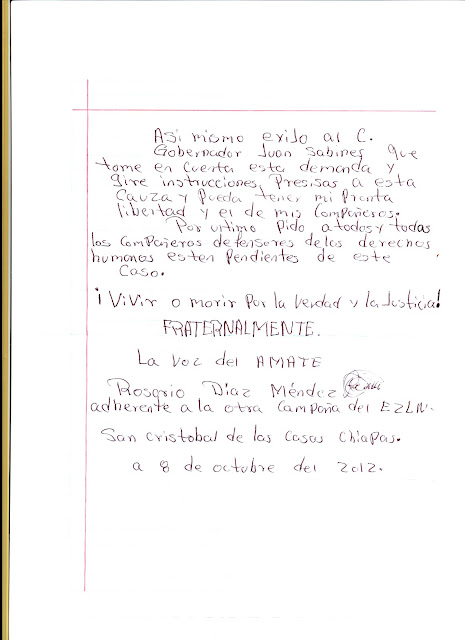 Asi mismo exijo al C.
Gobernador Juan Sabines que
tome en cuenta esta demanda y
gire instrucciones, Presisas a esta
Cauza y Pueda tener mi Pronta
libertad y el de mis Compañeros.
Por ultimo Pido a todos y todas
los Compañeros defensores de los derechos
humanos esten Pendientes de este
Caso.
¡Vivir o morir Por la Verdad y la Justicia!
FRATERNALMENTE.
La Voz del AMATE
Rosario Díaz Méndez
adherente a la otra Campaña del EZLN.
San Cristobal de las Casas Chiapas.
a 8 de octubre del 2012.